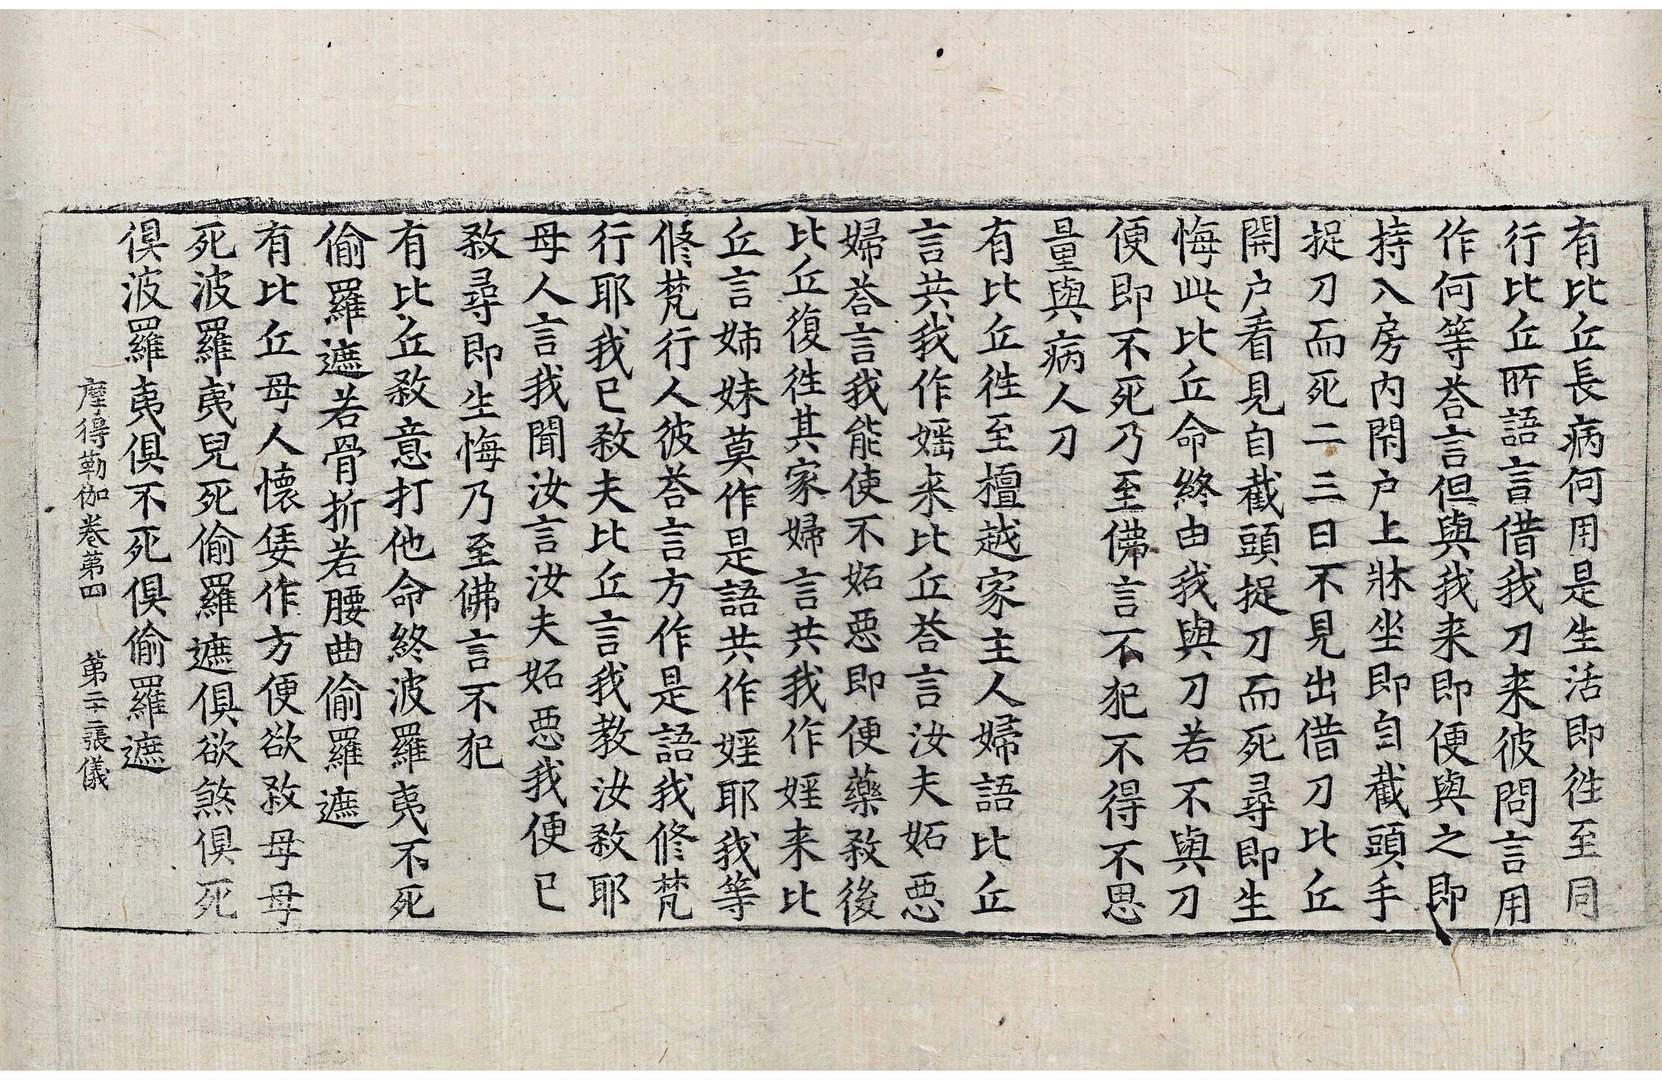 有比丘長病何用是生活即往至同
行比丘所語言借我刀来彼問言用
作何等荅言但與我来即便與之即
持入房内閇户上牀坐即自截頭手
捉刀而死二三日不見出借刀比丘
開户看見自截頭捉刀而死尋即生
悔此比丘命終由我與刀若不與刀
便即不死乃至佛言不犯不得不思
量與病人刀
有比丘往至檀越家主人婦語比丘
言共我作婬来比丘荅言汝夫妬惡
婦荅言我能使不妬惡即便藥敎後
比丘復往其家婦言共我作婬来比
丘言姉妹莫作是語共作婬耶我等
修梵行人彼荅言方作是語我修梵
行耶我已敎夫比丘言我教汝敎耶
母人言我聞汝言汝夫妬惡我便已
敎尋即生悔乃至佛言不犯
有比丘敎意打他命終波羅夷不死
偷羅遮若骨折若腰曲偷羅遮
有比丘母人懷㚻作方便欲敎母母
死波羅夷兒死偷羅遮俱欲煞俱死
俱波羅夷俱不死俱偷羅遮
摩得勒伽卷第四 第二十二張儀